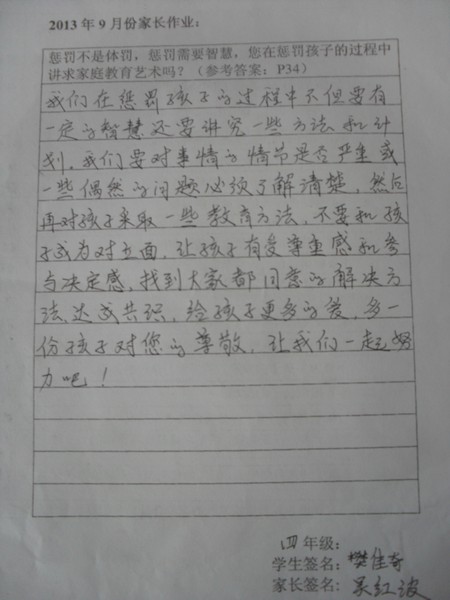 2013 年 9 月份家长作业：
惩罚不是体罚，惩罚需要智慧，您在惩罚孩子的过程中
讲求家庭教育艺术吗？（参考答案：P34）
我们在惩罚孩子的过程中不但要有
一定的智慧还要讲究一些方法和计
划，我们要对事情的情节是否严重或
一些偶然的问题必须了解清楚，然后
再对孩子采取一些教育方法，不要和孩
子成为对立面，让孩子有受尊重感和参
与决定感，找到大家都同意的解决方
法达成共识，给孩子更多的爱，多一
份孩子对您的尊敬，让我们一起努
力吧！
四年级：
学生签名：樊佳奇
家长签名：吴红波